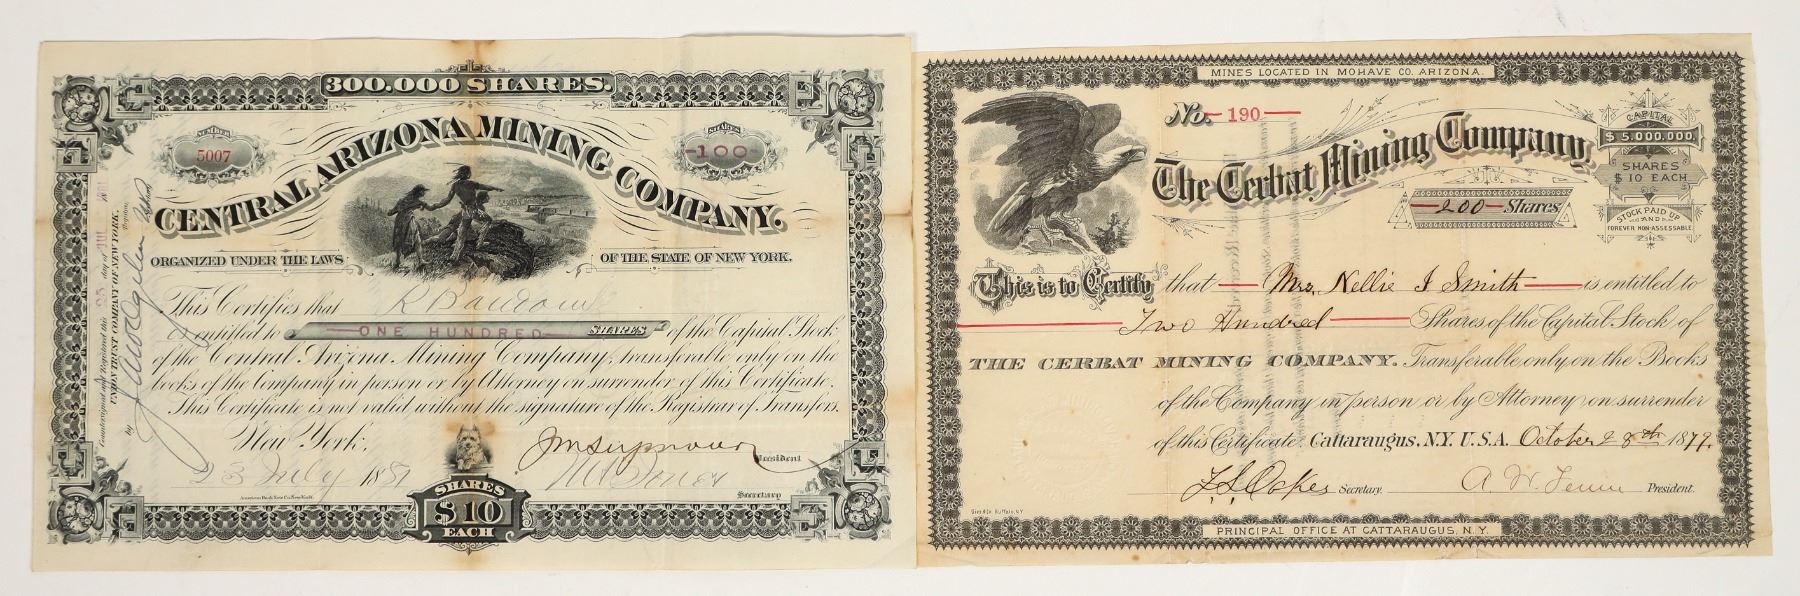 300.000 SHARES.
NUMBER
5007
SHARES
100
CENTRAL ARIZONA MINING COMPANY.
ORGANIZED UNDER THE LAWS OF THE STATE OF NEW YORK.
This Certifies that
is entitled to ONE HUNDRED SHARES of the Capital Stock
of the Central Arizona Mining Company, transferable only on the
books of the Company in person or by Attorney on surrender of this Certificate.
This Certificate is not valid without the signature of the Registrar of Transfers.
New York,
23 July 1881
JM Seymour President
Secretary
American Bank Note Co. New York.
SHARES
$10
EACH
Countersigned and Registered this 25 day of JUL
UNION TRUST COMPANY OF NEW YORK.
by
MINES LOCATED IN MOHAVE CO. ARIZONA.
No. 190
The Cerbat Mining Company.
200 Shares
CAPITAL
$5.000.000.
SHARES
$10 EACH
STOCK PAID UP
AND
FOREVER NON-ASSESSABLE
This is to Certify that Mrs. Nellie J Smith is entitled to
Two Hundred Shares of the Capital Stock of
THE CERBAT MINING COMPANY. Transferable only on the Books
of the Company in person or by Attorney on surrender
of this Certificate. Cattaraugus, N.Y. U.S.A. October 28th 1879.
Oakes Secretary. President.
PRINCIPAL OFFICE AT CATTARAUGUS, N.Y.